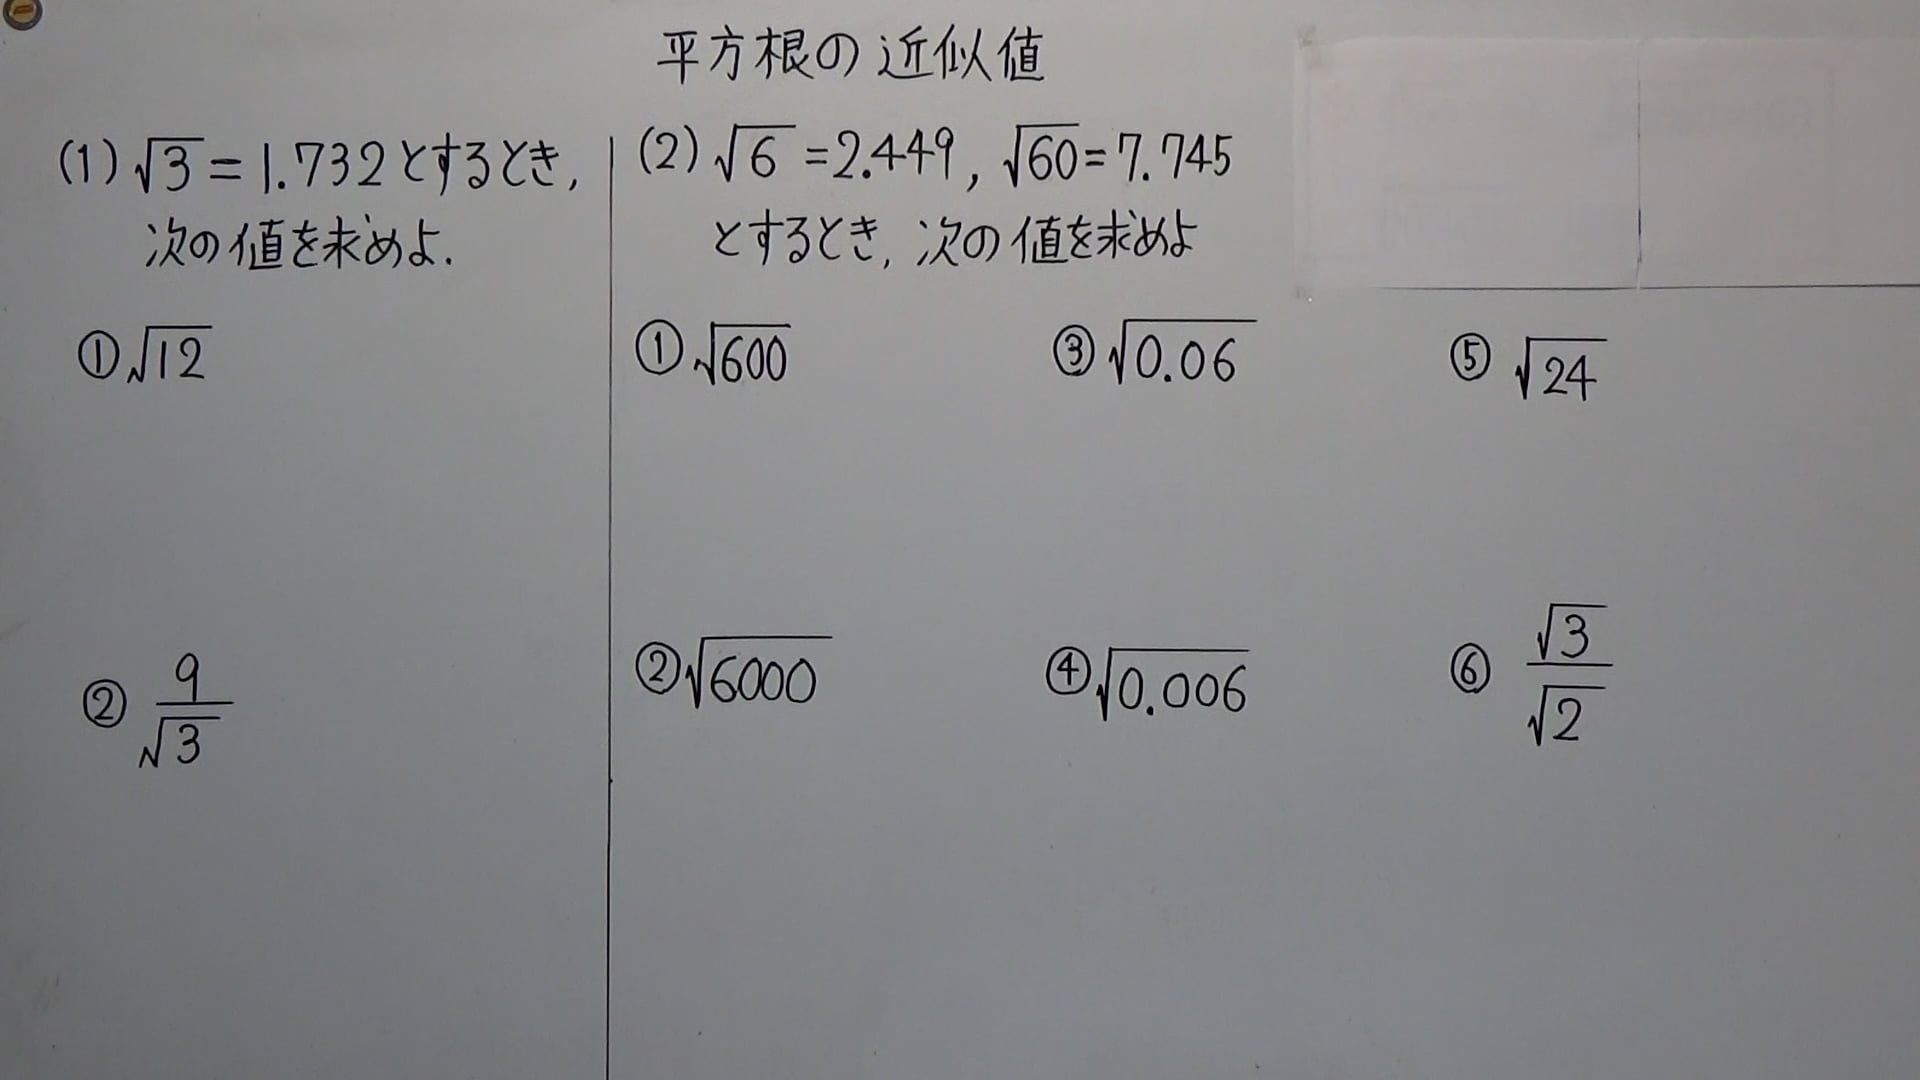 平方根の近似値
(1) √3 = 1.732とするとき,
次の値を求めよ.
① √12
② 9/√3
(2) √6 = 2.449, √60 = 7.745
とするとき, 次の値を求めよ
① √600
② √6000
③ √0.06
④ √0.006
⑤ √24
⑥ √3/√2